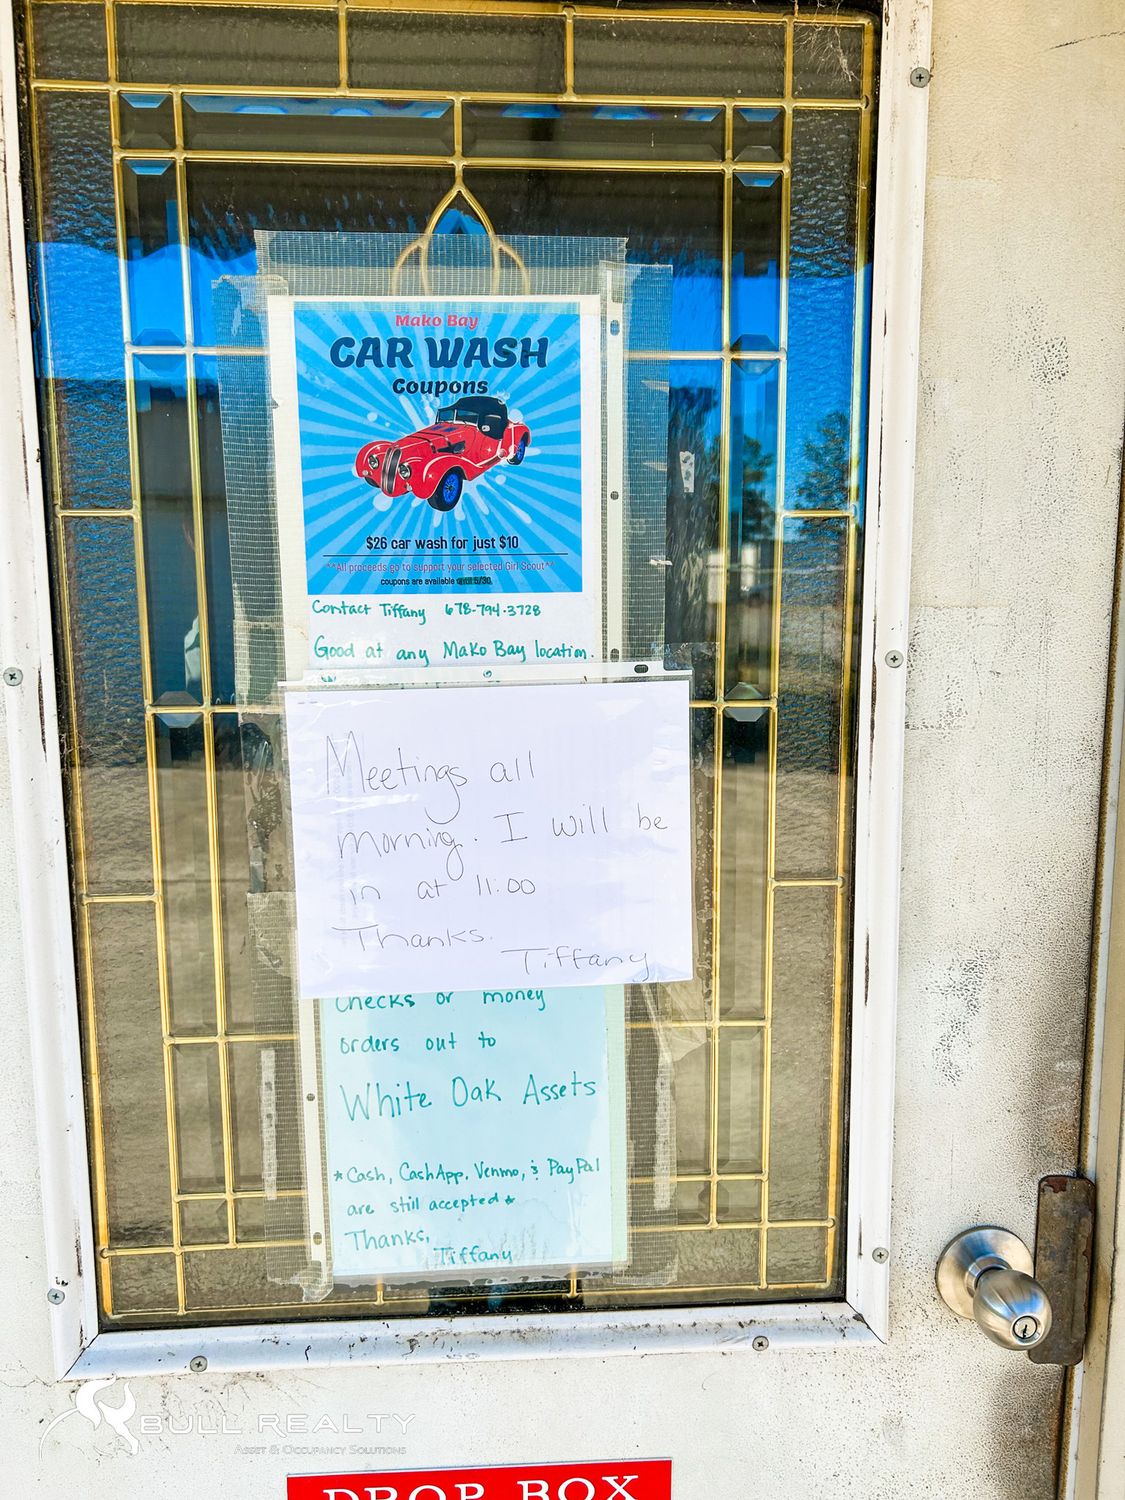 Mako Bay
CAR WASH
Coupons
$26 car wash for just $10
**All proceeds go to support your selected Girl Scout**
coupons are available until 5/30.
Contact Tiffany 678-794-3728
Good at any Mako Bay location.
Meetings all
morning. I will be
in at 11:00
Thanks.
Tiffany
checks or money
orders out to
White Oak Assets
*Cash, CashApp, Venmo, & PayPal
are still accepted*
Thanks,
Tiffany
BULL REALTY
ASSET & OCCUPANCY SOLUTIONS
DROP BOX